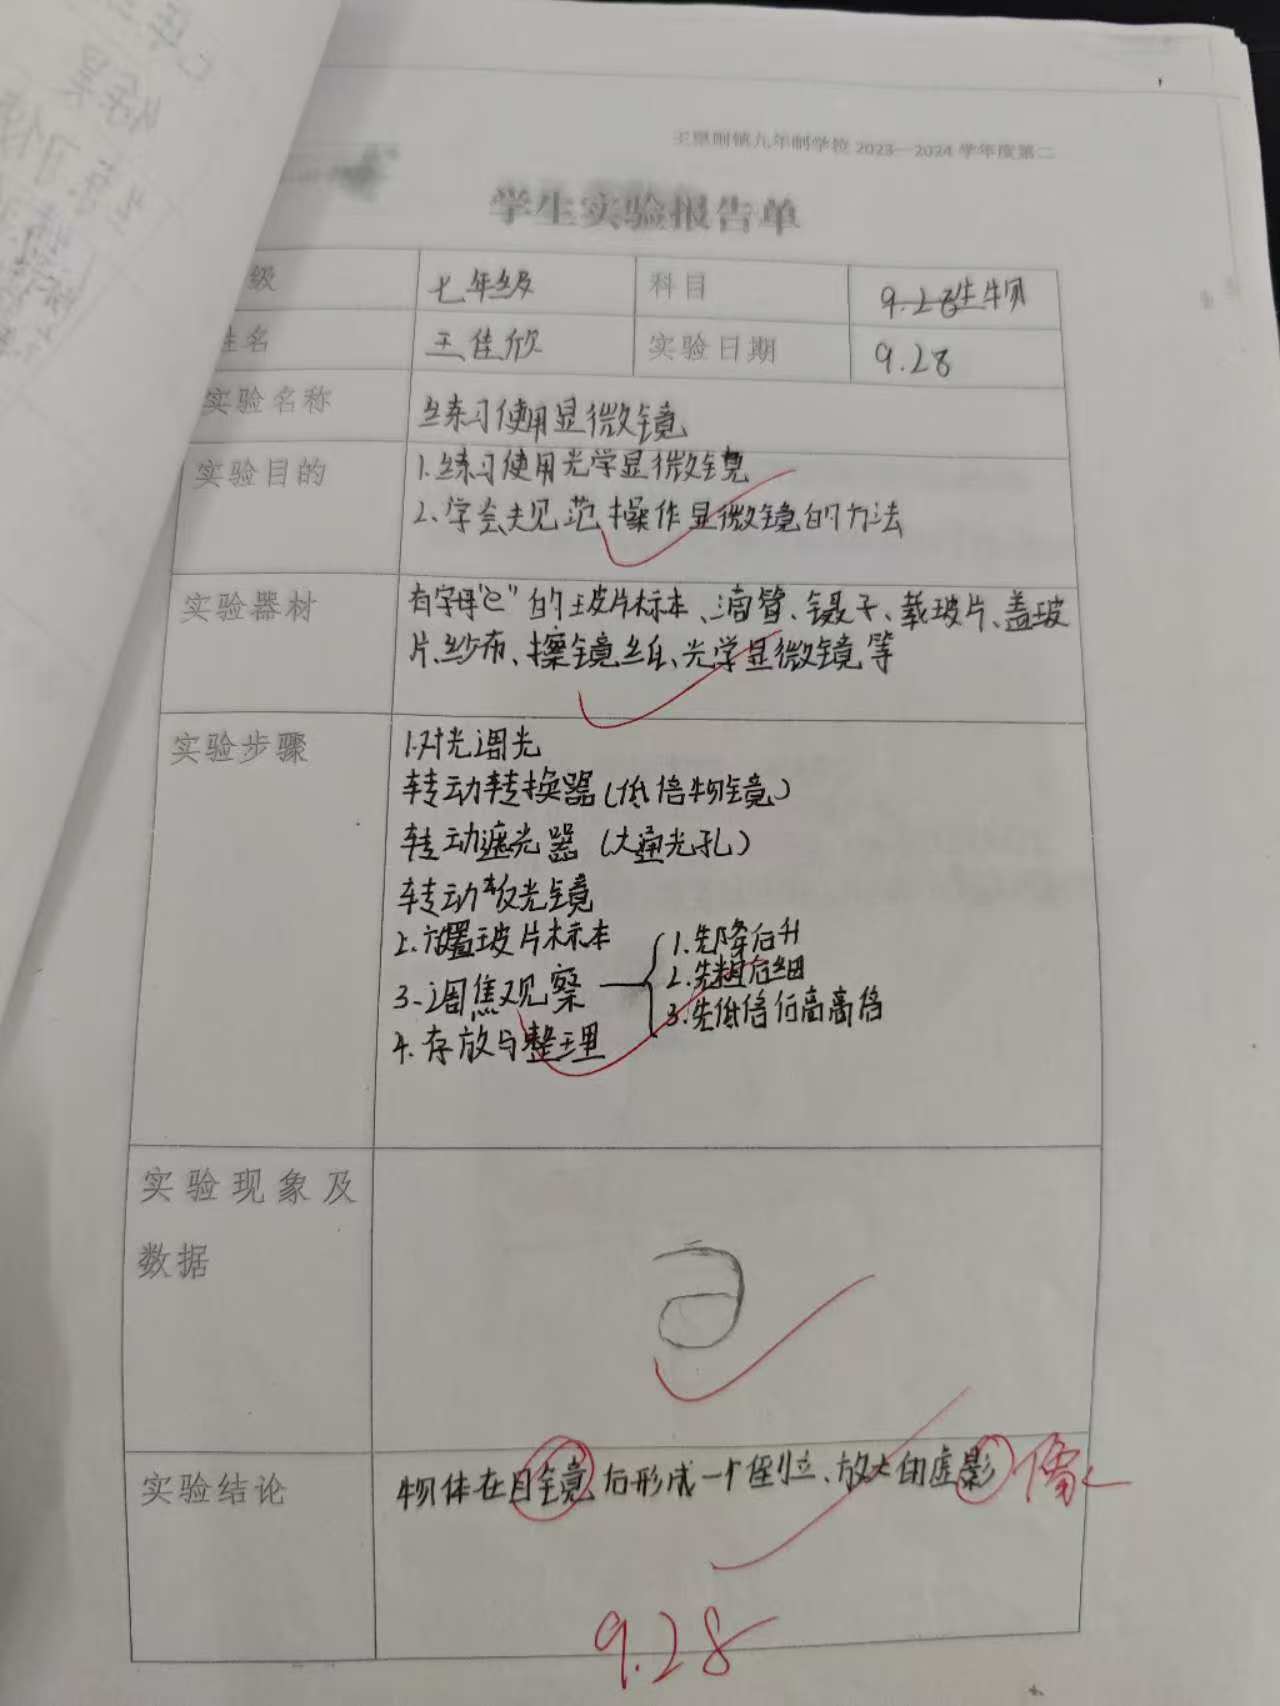 九年制学校 2023—2024 学年度第二
学生实验报告单
级 七年级 科目 9.28生物
姓名 王佳欣 实验日期 9.28
实验名称 练习使用显微镜
实验目的 1.练习使用光学显微镜
2.学会规范操作显微镜的方法
实验器材 有字母“e”的玻片标本、滴管、镊子、载玻片、盖玻
片、纱布、擦镜纸、光学显微镜等
实验步骤 1.对光调光
转动转换器(低倍物镜)
转动遮光器(大通光孔)
转动反光镜
2.放置玻片标本
3.调焦观察
4.存放与整理
1.先降后升
2.先粗后细
3.先低倍后高高倍
实验现象及
数据
实验结论 物体在目镜后形成一个倒立、放大的虚影 像
9.28